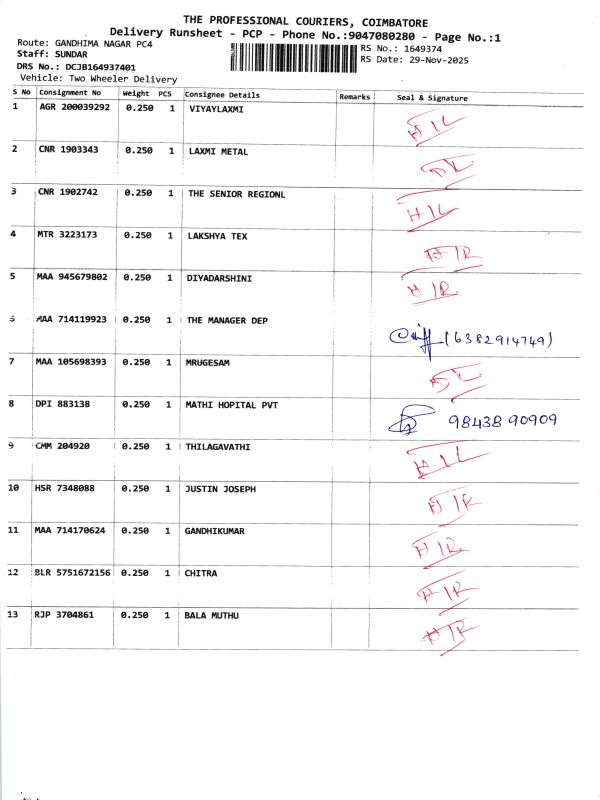 THE PROFESSIONAL COURIERS, COIMBATORE
Delivery Runsheet - PCP - Phone No.:9047080280 - Page No.:1
Route: GANDHIMA NAGAR PC4
Staff: SUNDAR
DRS No.: DCJB164937401
Vehicle: Two Wheeler Delivery
RS No.: 1649374
RS Date: 29-Nov-2025
S No Consignment No Weight PCS Consignee Details Remarks Seal & Signature
1 AGR 200039292 0.250 1 VIYAYLAXMI H/L
2 CNR 1903343 0.250 1 LAXMI METAL
3 CNR 1902742 0.250 1 THE SENIOR REGIONL H/L
4 MTR 3223173 0.250 1 LAKSHYA TEX H/R
5 MAA 945679802 0.250 1 DIYADARSHINI H/R
6 MAA 714119923 0.250 1 THE MANAGER DEP (6382914749)
7 MAA 105698393 0.250 1 MRUGESAM
8 DPI 883138 0.250 1 MATHI HOPITAL PVT 98438 90909
9 CMM 204920 0.250 1 THILAGAVATHI H/L
10 HSR 7348088 0.250 1 JUSTIN JOSEPH H/R
11 MAA 714170624 0.250 1 GANDHIKUMAR H/R
12 BLR 5751672156 0.250 1 CHITRA H/R
13 RJP 3704861 0.250 1 BALA MUTHU H/R